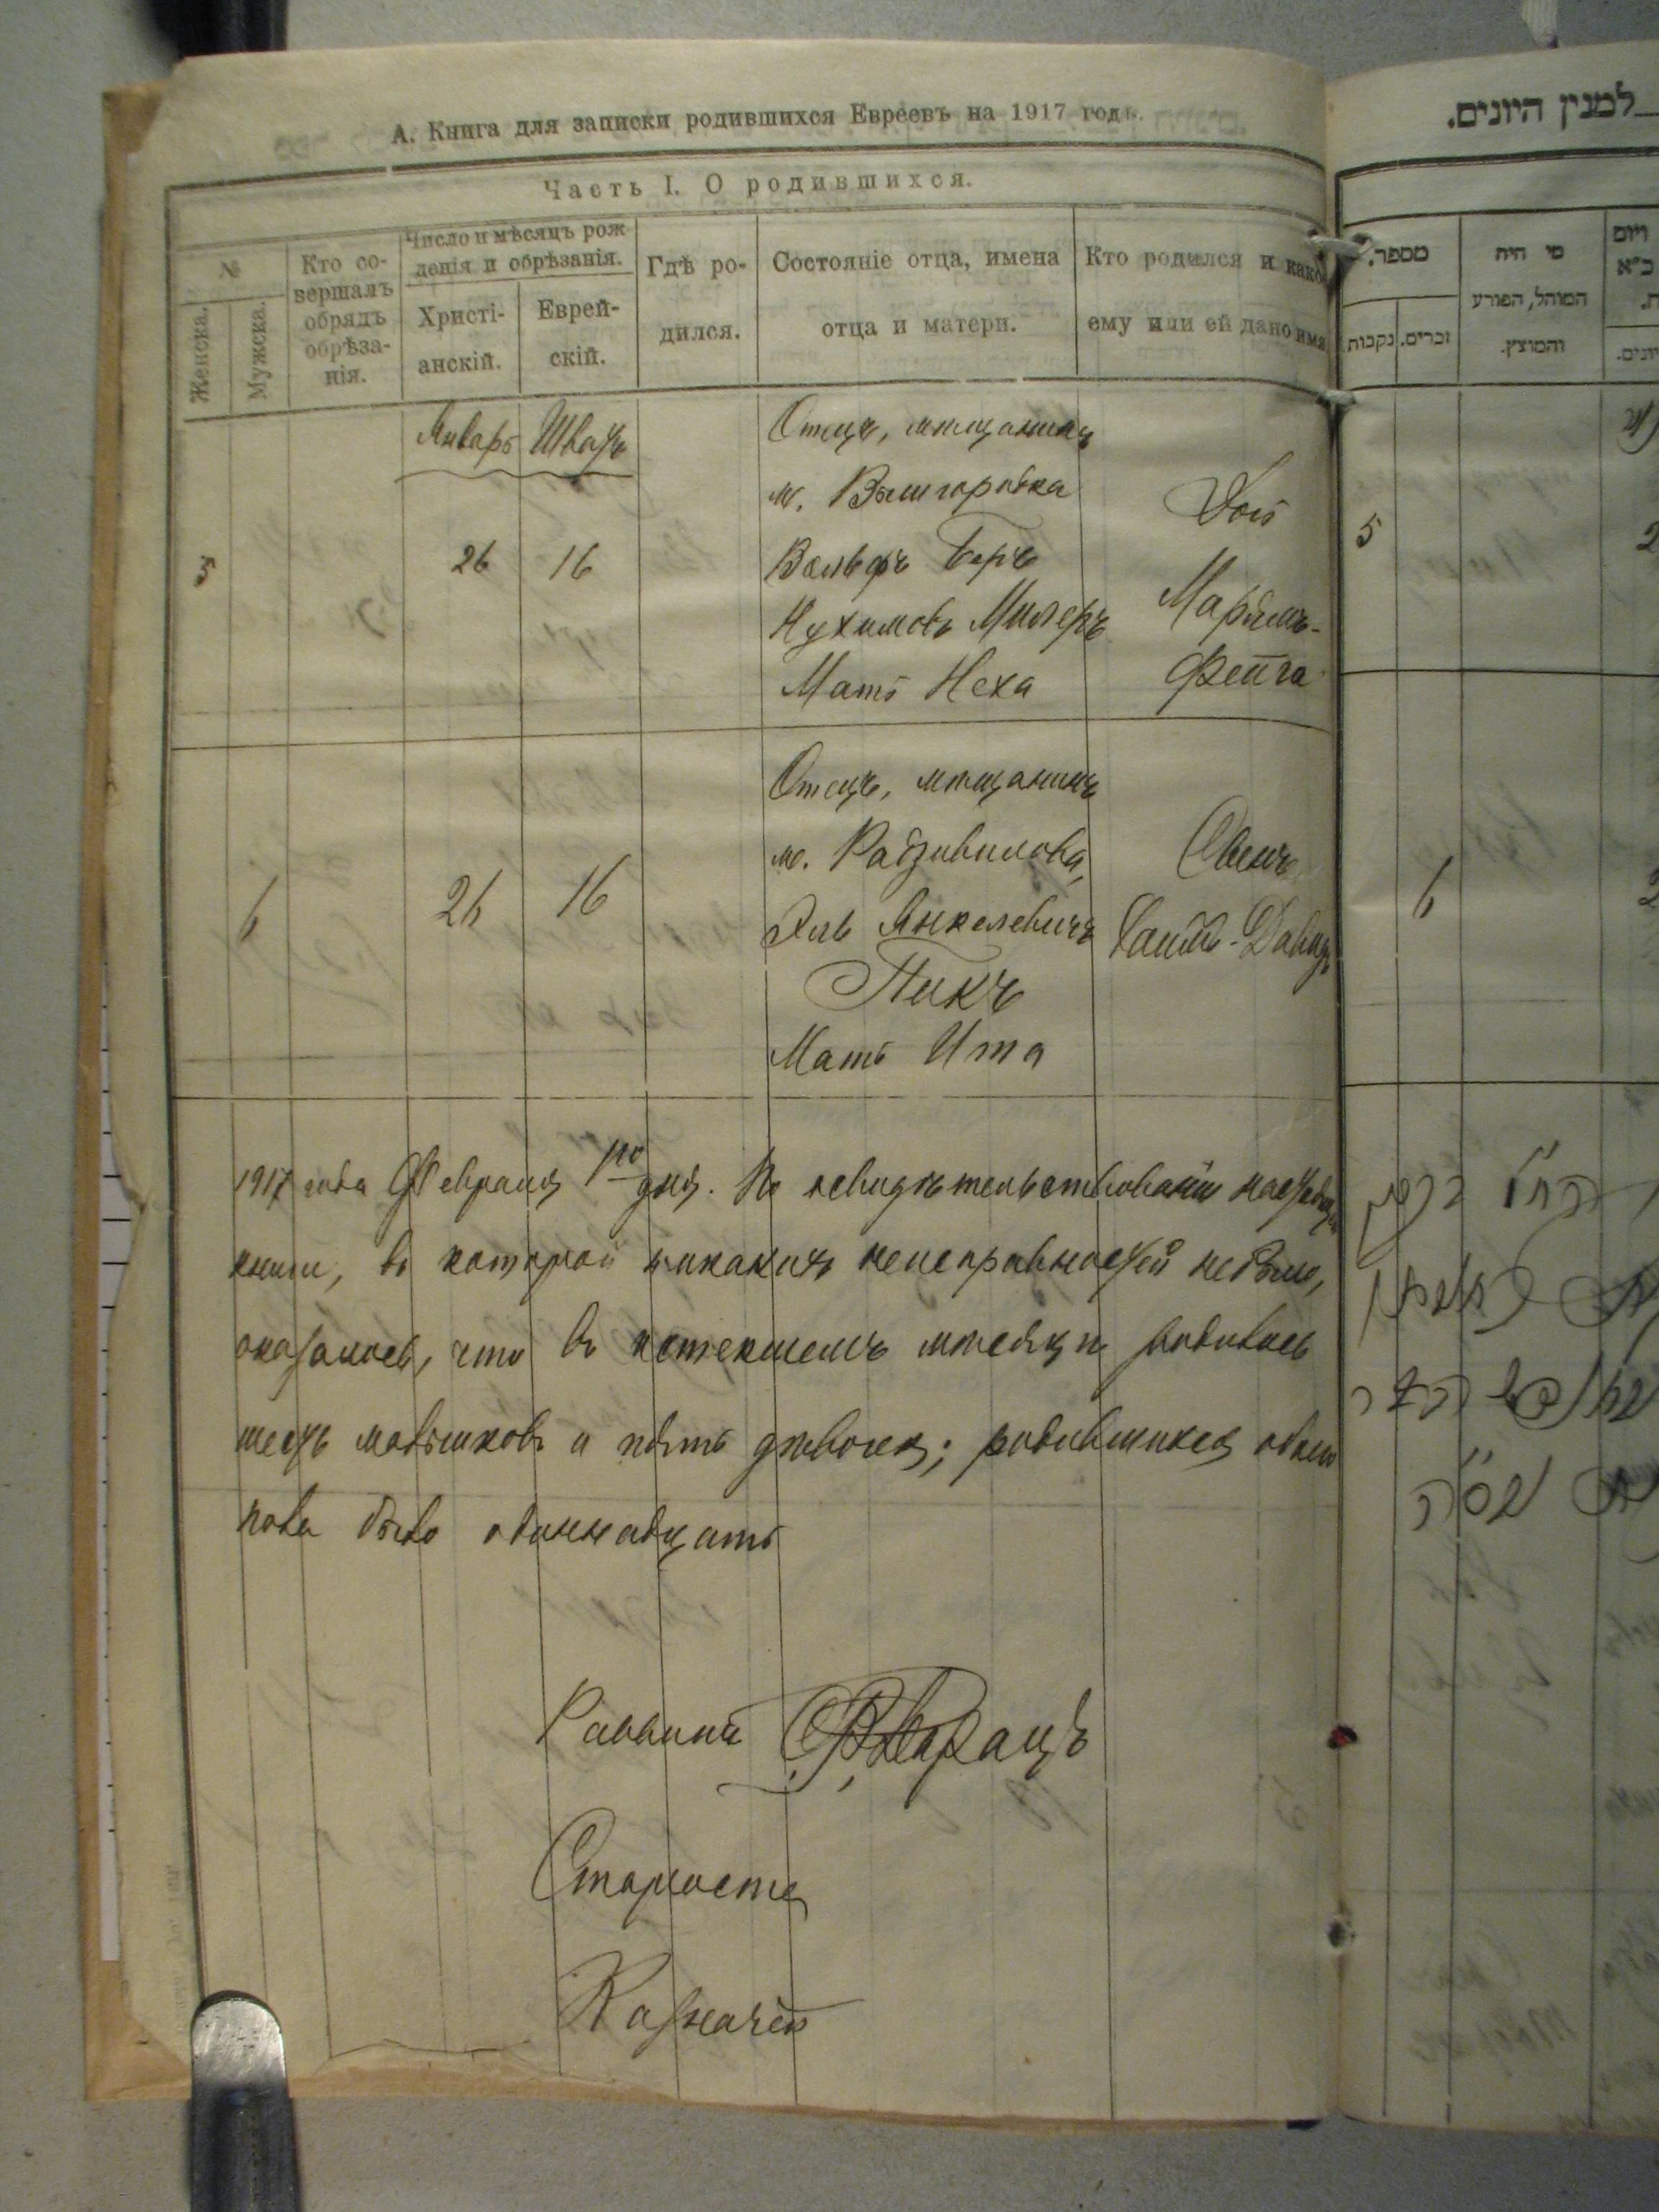 А. Книга для записки родившихся Евреевъ на 1917 годъ.
Часть I. О родившихся.
№
Женска.
Мужска.
Кто со-
вершалъ
обрядъ
обрѣза-
нія.
Число и мѣсяцъ рож
денія и обрѣзанія.
Христі-
анскій.
Еврей-
скій.
Гдѣ ро-
дился.
Состояніе отца, имена
отца и матери.
Кто родился и како
ему или ей дано имя
Январь Шватъ
Отецъ, мѣщанинъ
м. Вышгородка
5 26 16 Вольфъ Беръ
Нухимовъ Милеръ
Мать Неха
Дочь
Марьямъ-
Фейга
Отецъ, мѣщанинъ
м. Радзивилова,
6 26 16 Эль Янкелевичъ
Пикъ
Мать Ита
Давидъ
1917 года Февраля 1го дня. По освидѣтельствованіи настоящей
книги, въ которой никакихъ неисправностей не было,
оказалось, что въ истекшемъ мѣсяцѣ родилось
шесть мальчиковъ и пять дѣвочекъ; родившихся обоего
пола было одиннадцать
Раввинъ
Староста
Казначей
למנין היונים.
מספר.
נקבות
זכרים.
מי היה
המוהל, הפורע
והמוצץ.
5
6